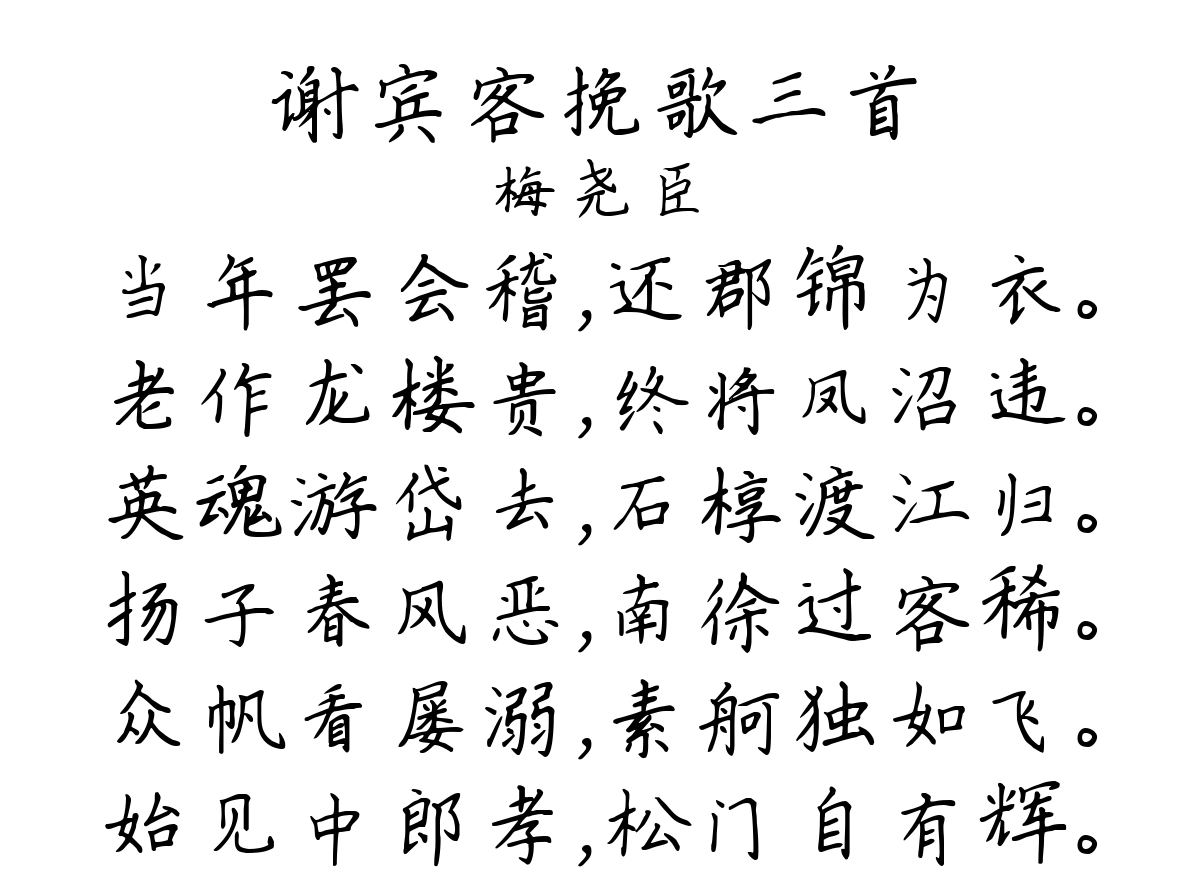 谢宾客挽歌三首
梅尧臣
当年罢会稽,还郡锦为衣。
老作龙楼贵,终将凤沼违。
英魂游岱去,石椁渡江归。
扬子春风恶,南徐过客稀。
众帆看屡溺,素舸独如飞。
始见中郎孝,松门自有辉。